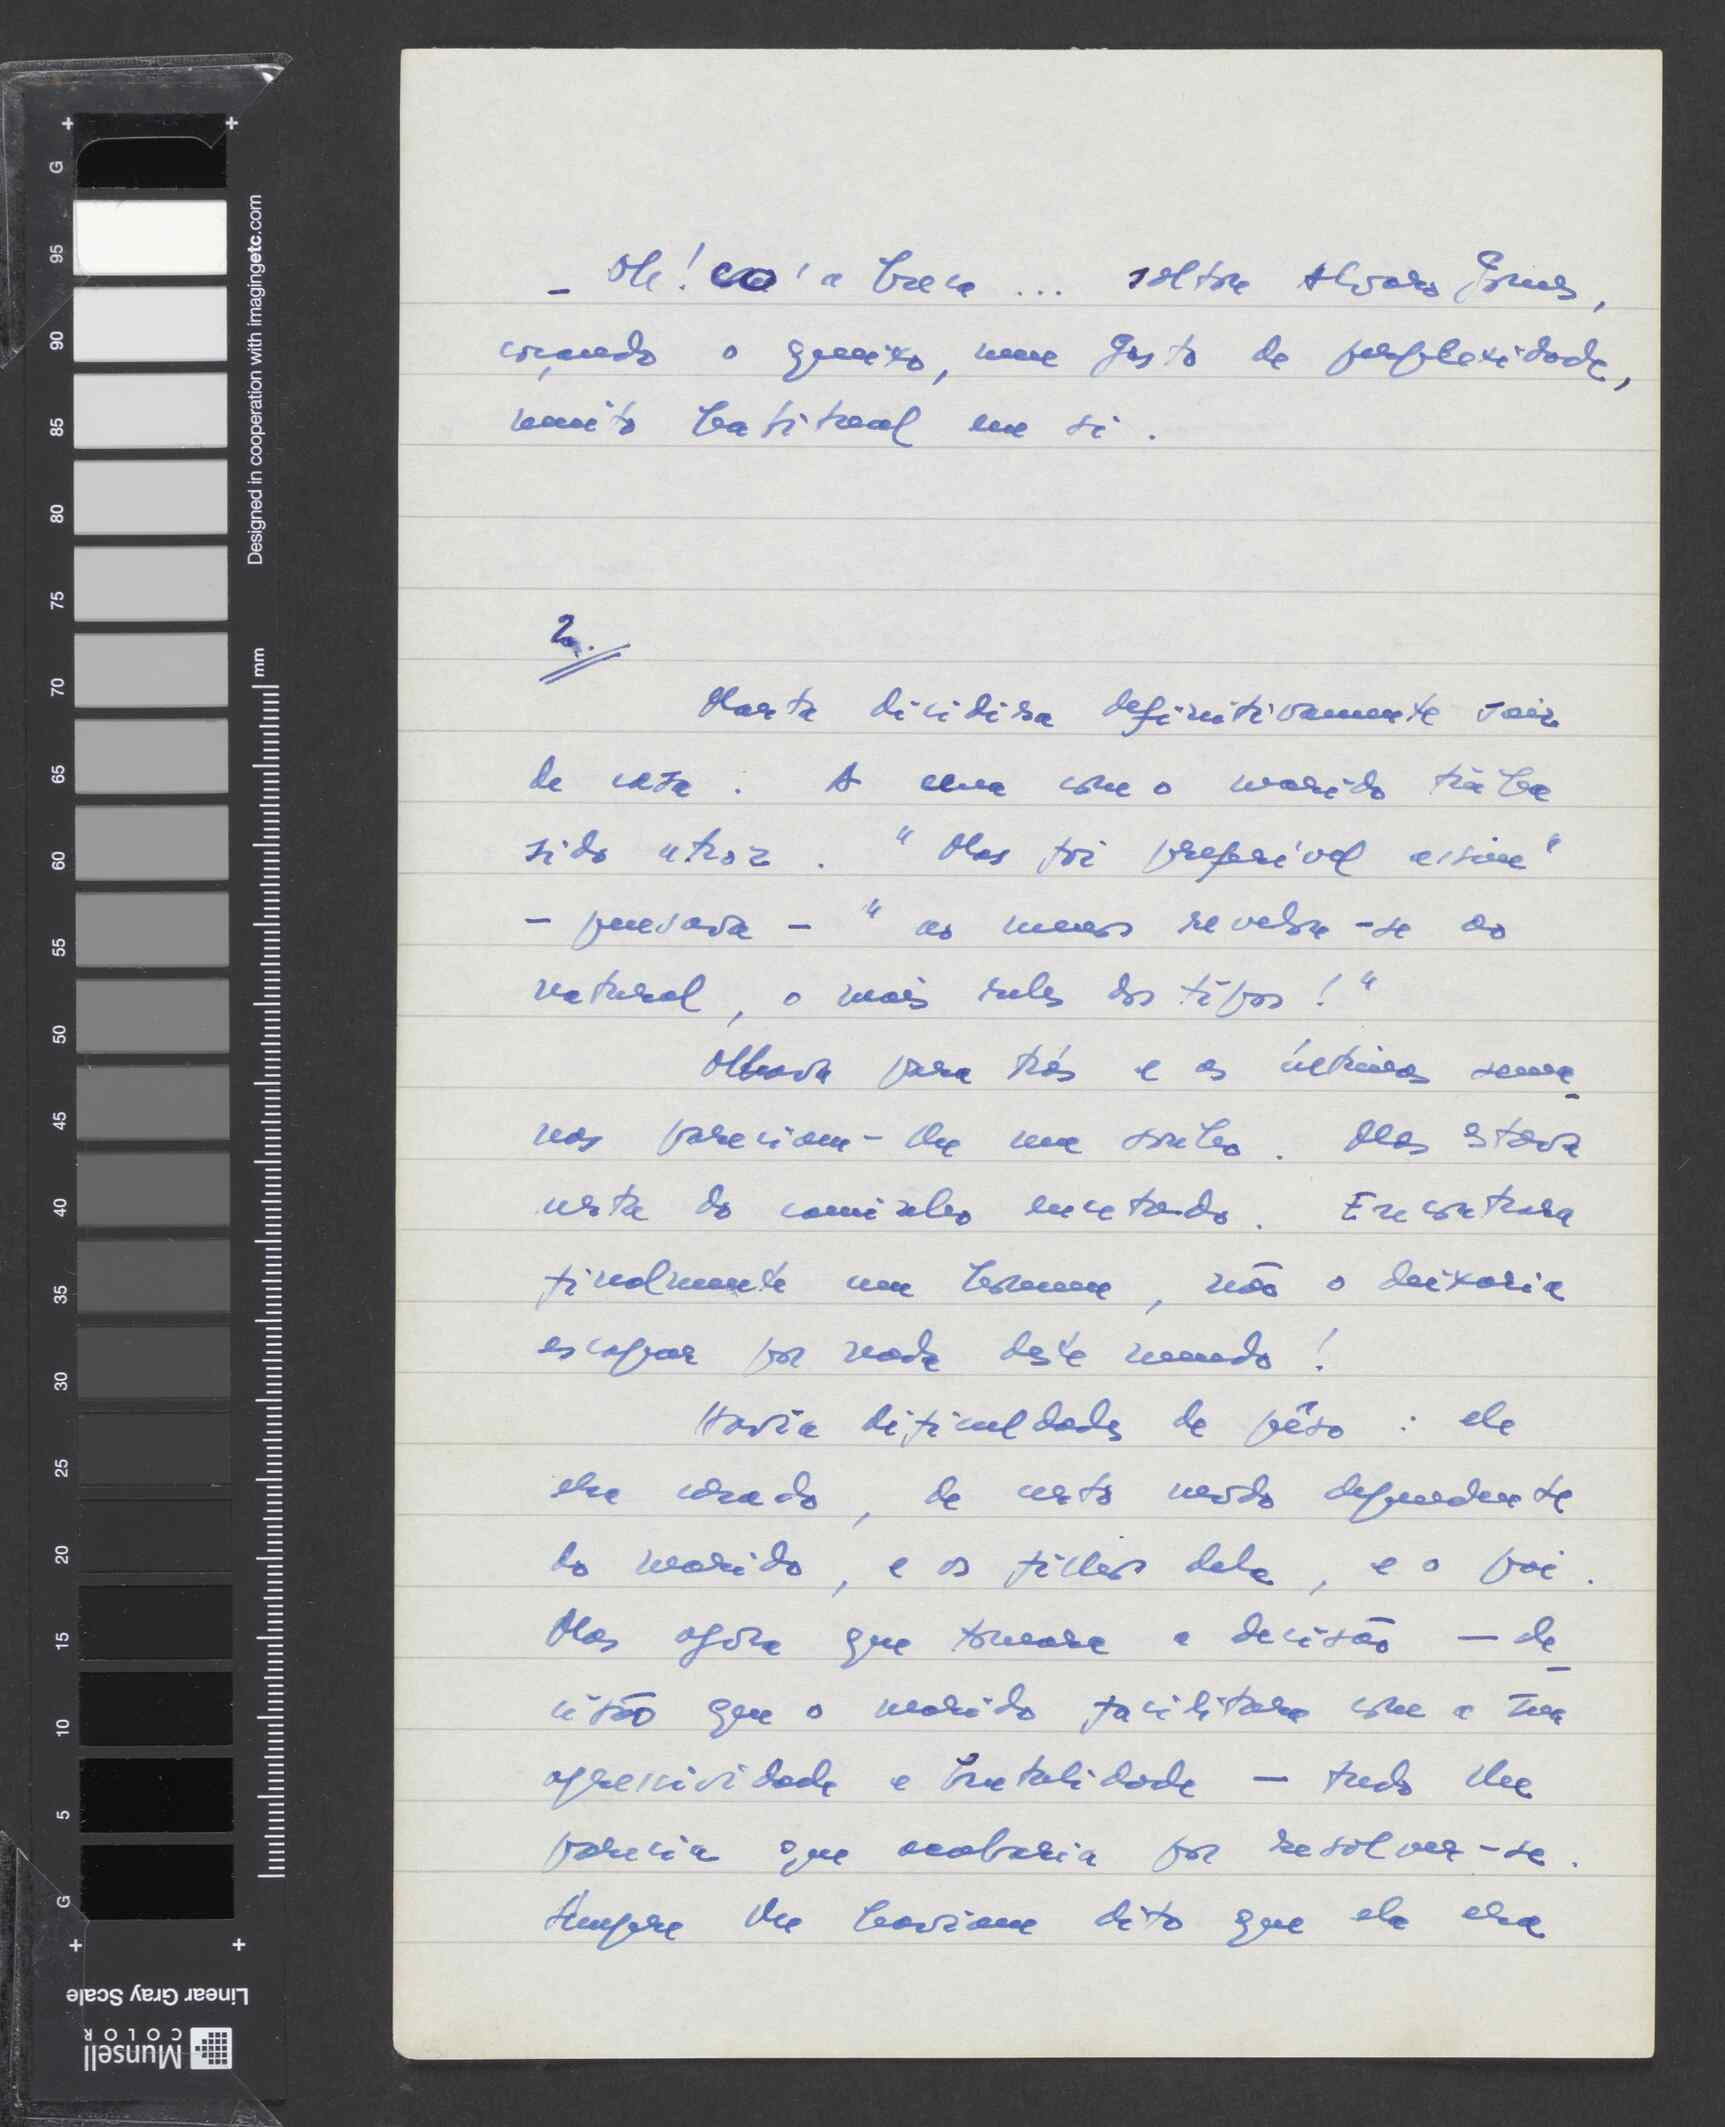 - Oh! co'a breca ... soltou Alvaro Gomes,
coçando o queixo, num gesto de perplexidade,
muito habitual em si.
2.
Marta dicidira definitivamente sair
de casa. A cena com o marido tinha
sido atroz. "Mas foi preferível assim"
- pensava - "ao menos revelou-se ao
natural, o mais reles dos tipos!"
Olhava para trás e as últimas sema-
nas pareciam-lhe um sonho. Mas estava
certa do caminho encetado. Encontrara
finalmente um homem, não o deixaria
escapar por nada deste mundo!
Havia dificuldades de pêso: ele
era casado, de certo modo dependente
do marido, e os filhos dela, e o pai.
Mas agora que tomara a decisão — de-
cisão que o marido facilitara com a sua
agressividade e brutalidade — tudo lhe
parecia que acabaria por resolver-se.
Sempre lhe haviam dito que ela era
Designed in cooperation with imagingetc.com
mm
G
95
90
85
80
75
70
65
60
55
50
45
40
35
30
25
20
15
10
5
G
Linear Gray Scale
Munsell
COLOR